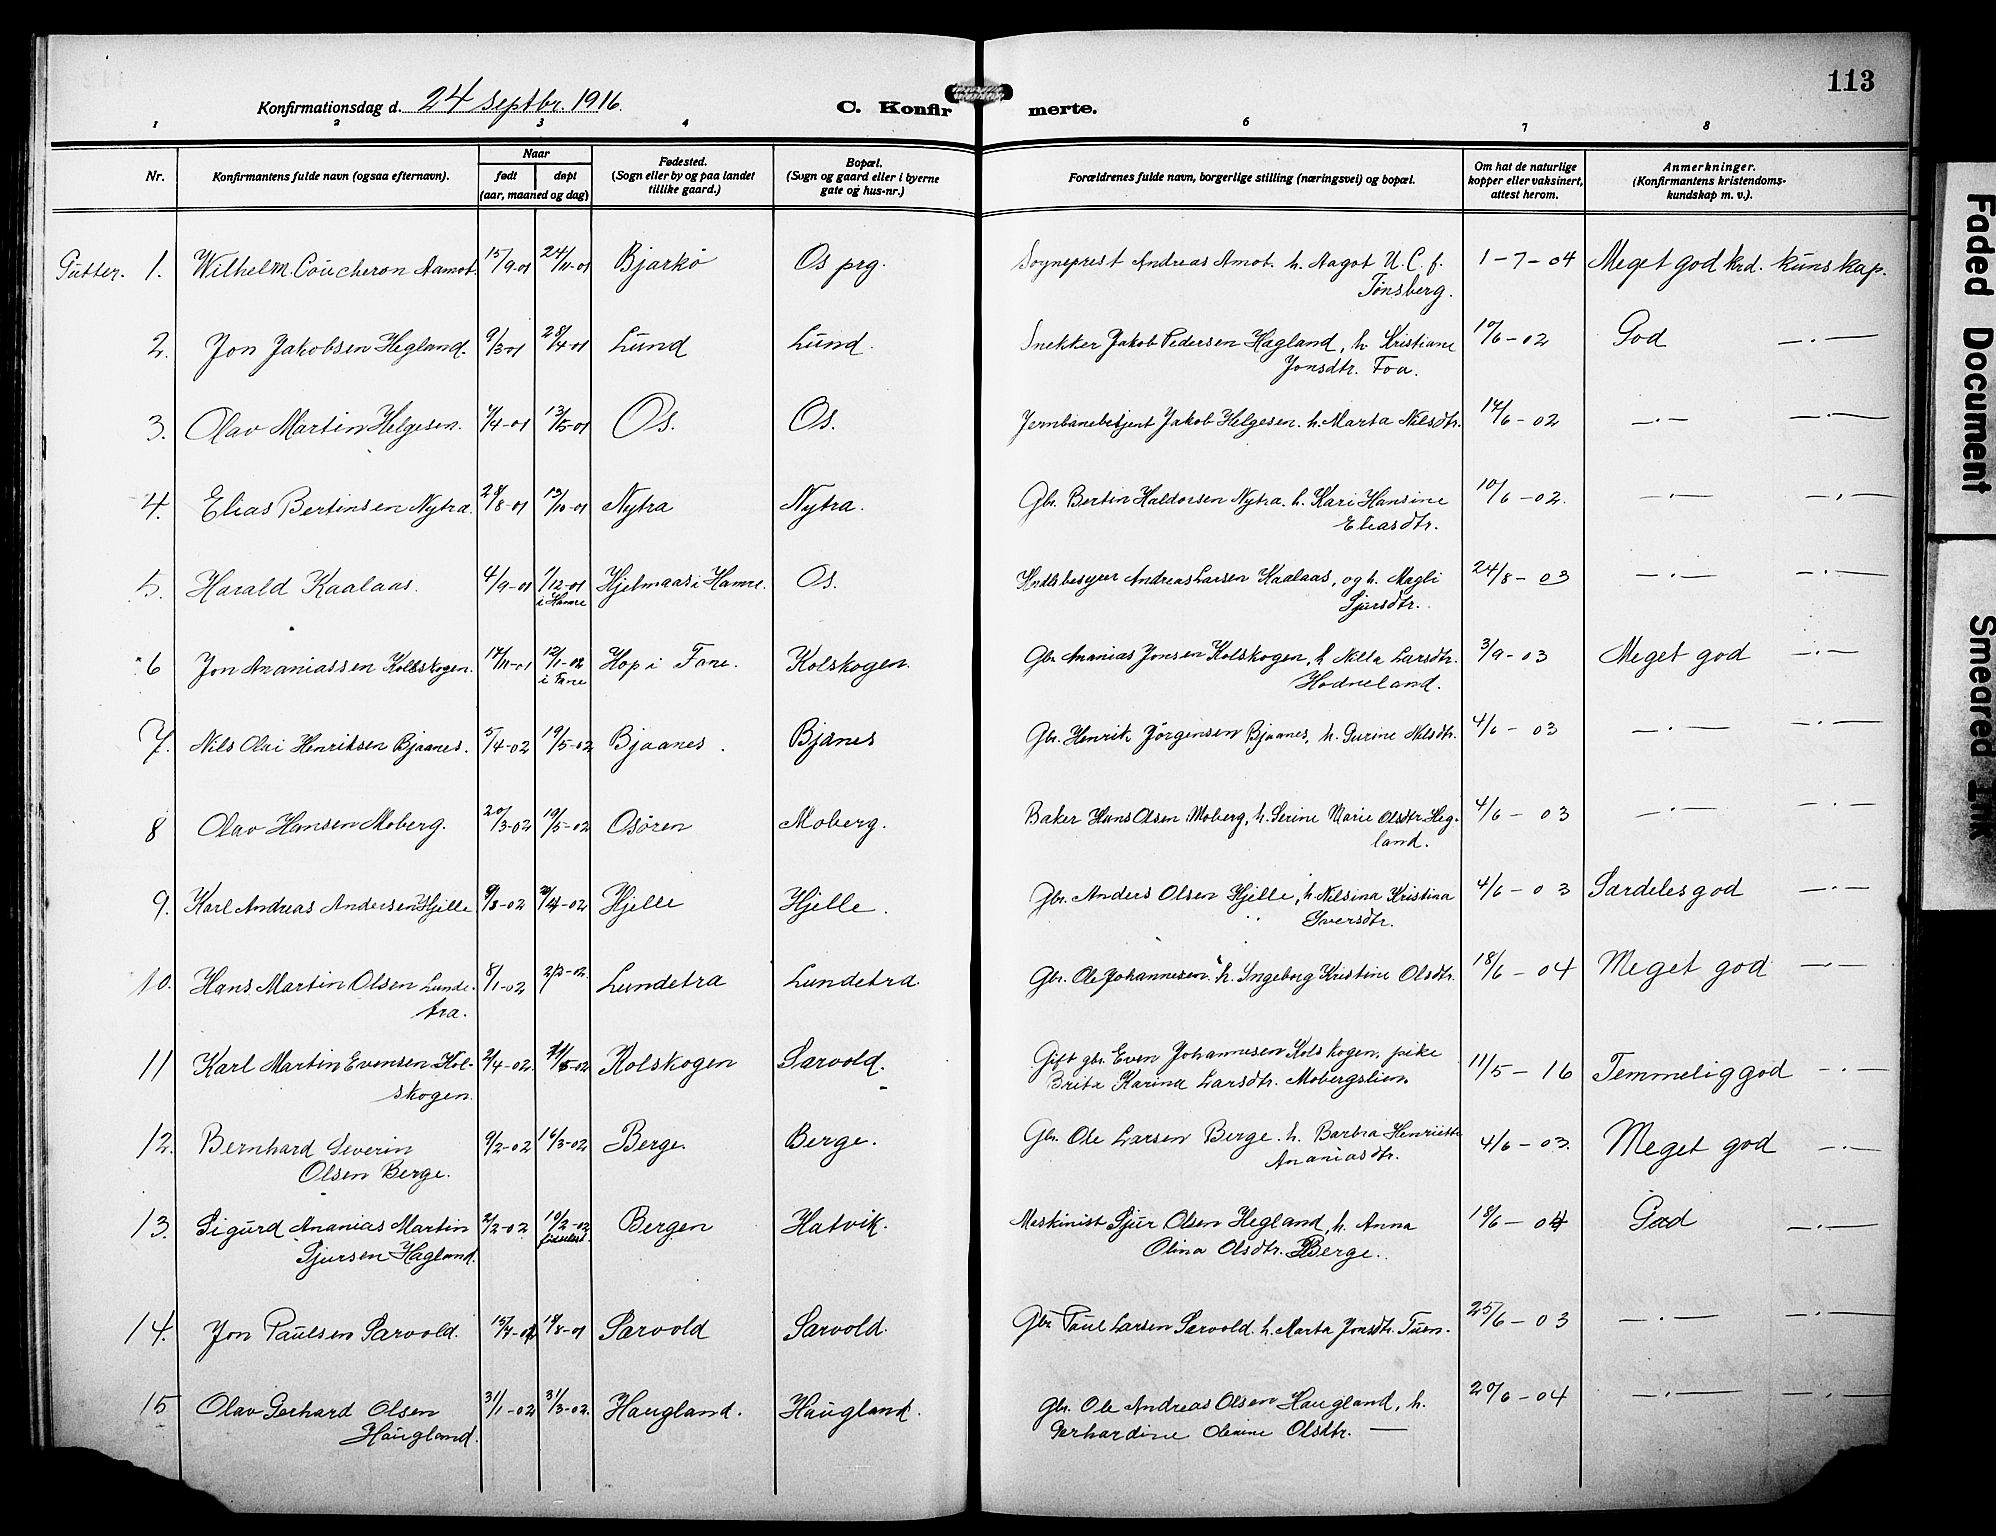 113
Konfirmationsdag d. 24 Septbr. 1916.
C. Konfirmerte.
1 2 3 4 5 6 7 8
Nr. Konfirmantens fulde navn (ogsaa efternavn). Naar født døpt (aar, maaned og dag) Fødested. (Sogn eller by og paa landet tillike gaard.) Bopæl. (Sogn og gaard eller i byerne gate og hus-nr.) Forældrenes fulde navn, borgerlige stilling (næringsvei) og bopæl. Om hat de naturlige kopper eller vaksinert, attest herom. Anmerkninger. (Konfirmantens kristendoms-kundskap m. v.).
Gutter. 1. Wilhelm Coucheron Aamot. 15/9-01 24/11-01 Bjarkö Os prg. Sogneprest Andreas Amot. h. Aagot U. C. f. 1-7-04 Meget god krd. kunskap.
Tönsberg.
2. Jon Jakobsen Hegland. 9/3-01 28/4-01 Lund Lund. Snekker Jakob Pedersen Hagland, h. Kristiane 10/6-02 God —.—
Jonsdtr. Foa.
3. Olav Martin Helgesen. 4/4-01 13/5-01 Os. Os. Jernbanebetjent Jakob Helgesen. h. Marta Nilsdtr. 17/6-02 —.— —.—
4. Elias Bertinsen Nytra. 28/8-01 13/10-01 Nytra Nytra. Gbr. Bertin Haldorsen Nytra. h. Kari Hansine 10/6-02. —.— —.—
Eliasdtr.
5. Harald Kaalaas. 4/9-01 1/12-01 Hjelmaas i Hamre. Os. Andreas Larsen Kaalaas, og h. Magli 24/8-03 —.— —.—
i Hamre Sjursdtr.
6 Jon Ananiassen Kolskogen. 17/11-01 12/1-02 Hop i Fane. Kolskogen. Gbr. Ananias Jonsen Kolskogen, h. Nilla Larsdtr. 3/9-03 Meget god —.—
i Fane Hodneland.
7. Nils Olai Henriksen Bjaanes. 5/4-02 19/5-02 Bjaanes. Bjånes Gbr. Henrik Jörgensen Bjaanes, h. Gurine Nilsdtr. 4/6-03 —.— —.—
8 Olav Hansen Moberg. 20/3-02 19/5-02 Osören Moberg. Baker Hans Olsen Moberg, h. Serine Marie Olsdtr. Heg- 4/6-03 —.— —.—
land.
9. Karl Andreas Andersen Hjelle 9/3-02 Hjelle Hjelle. Gbr. Anders Olsen Hjelle, h. Nilsina Kristina 4/6-03 Særdeles god —.—
Iversdtr.
10. Hans Martin Olsen Lunde- 8/1-02 2/3-02. Lundetra Lundetra. Gbr. Ole Johannesen. h. Ingeborg Kristine Olsdtr. 18/6-04 Meget god —.—
tra.
11 Karl Martin Evensen Kol- 2/4-02. Kolskogen Sørvold. Gift gbr. Even Johannesen Kolskogen, pike 11/5-16 Temmelig god —.—
skogen. Brita Karina Larsdtr. Mobergslien.
12. Bernhard Severin 9/2-02 16/3-02 Berge. Berge. Gbr. Ole Larsen Berge. h. Barbra Henriette 4/6-03. Meget god —.—
Olsen Berge. Ananiasdtr.
13. Sigurd Ananias Martin 2/2-02 10/2-02 Bergen Hatvik. Maskinist Sjur Olsen Hegland, h. Anna 18/6-04 God —.—
Sjursen Hagland. Olina Olsdtr. Berge.
14. Jon Paulsen Sørvold. 18/8-01 Sørvold Sørvold. Gbr. Paul Larsen Sørvold. h. Marta Jonsdtr. Tuen. 25/6-03 —.— —.—
15 Olav Gerhard Olsen 31/1-02 31/3-02. Haugland. Haugland. Gbr. Ole Andreas Olsen Haugland, h. 20/6-04 —.— —.—
Haugland. Gerhardine Olsdtr. —
Faded Document
Smeared Ink